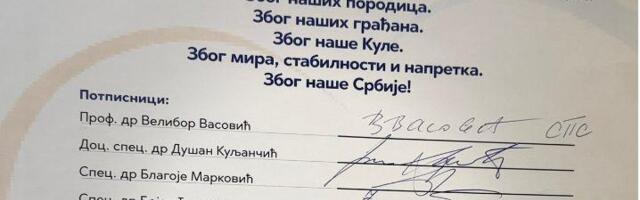 Због наших породица.
Због наших грађана.
Због наше Куле.
Због мира, стабилности и напретка.
Због наше Србије!
Потписници:
Проф. др Велибор Васовић ВВасовић СПС
Доц. спец. др Душан Куљанчић
Спец. др Благоје Марковић
Спец. др